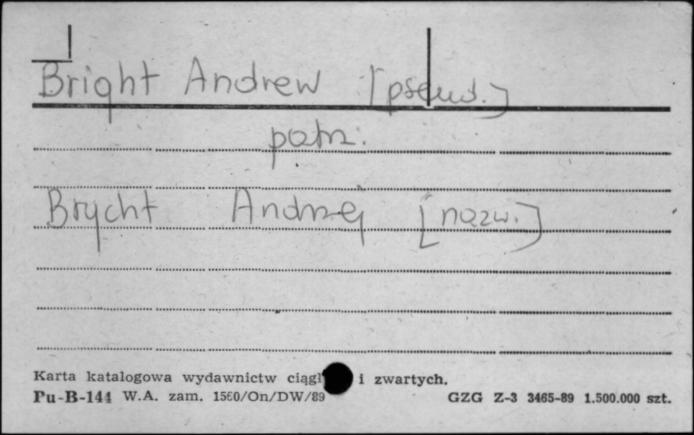 Bright Andrew [pseud.]
patrz.
Brycht Andrzej [nazw.]
Karta katalogowa wydawnictw ciągł i zwartych.
Pu-B-144 W.A. zam. 1560/On/DW/89 GZG Z-3 3465-89 1.500.000 szt.